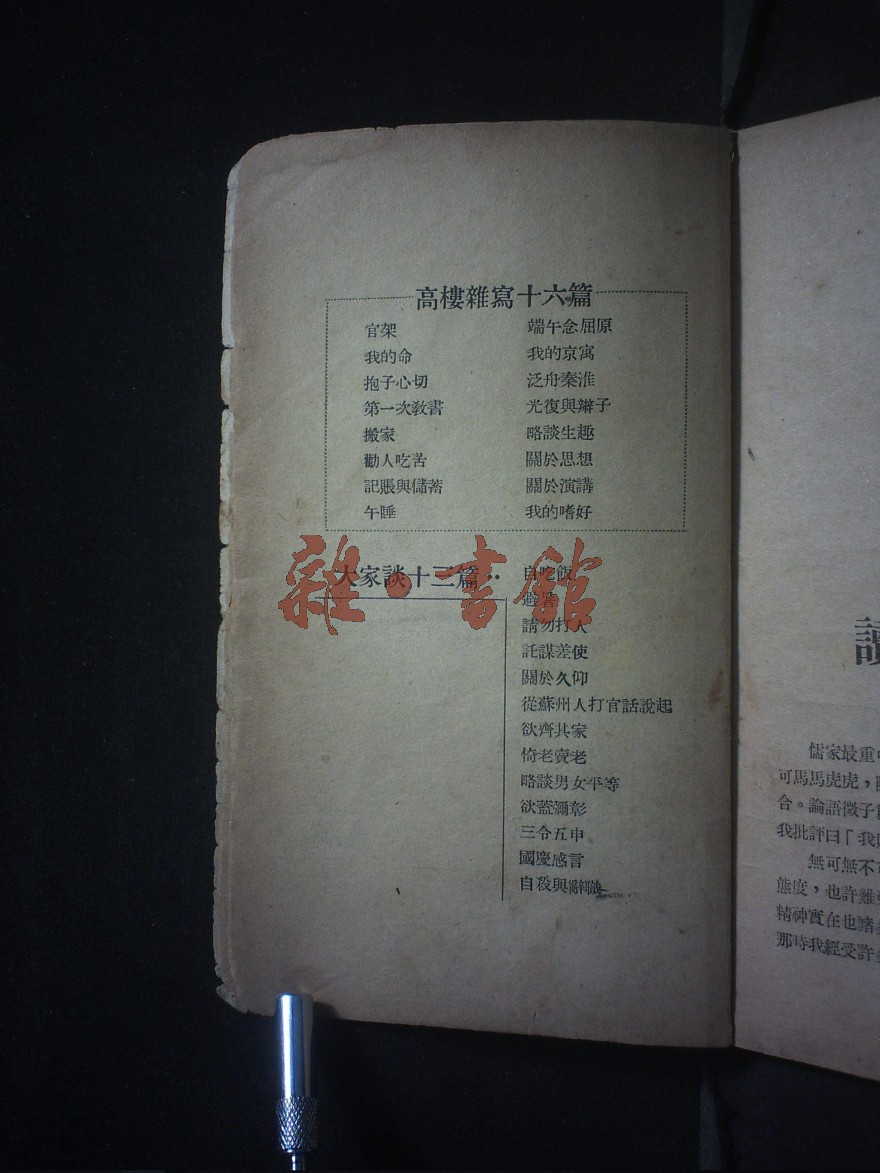 高樓雜寫十六篇
官架
我的命
抱子心切
第一次敎書
搬家
勸人吃苦
記賬與儲蓄
午睡
端午念屈原
我的京寓
泛舟秦淮
光復與辮子
略談生趣
關於思想
關於演講
我的嗜好
大家談十三篇
自吃飯
避暑
請勿打人
託謀差使
關於久仰
從蘇州人打官話說起
欲齊其家
倚老賣老
略談男女平等
欲蓋彌彰
三令五申
國慶感言
自殺與
雜·書館
讀
儒家最重
可馬馬虎虎，
合。論語微子
我批評曰「我
無可無不可
態度，也許難
精神實在也諸
那時我經受許